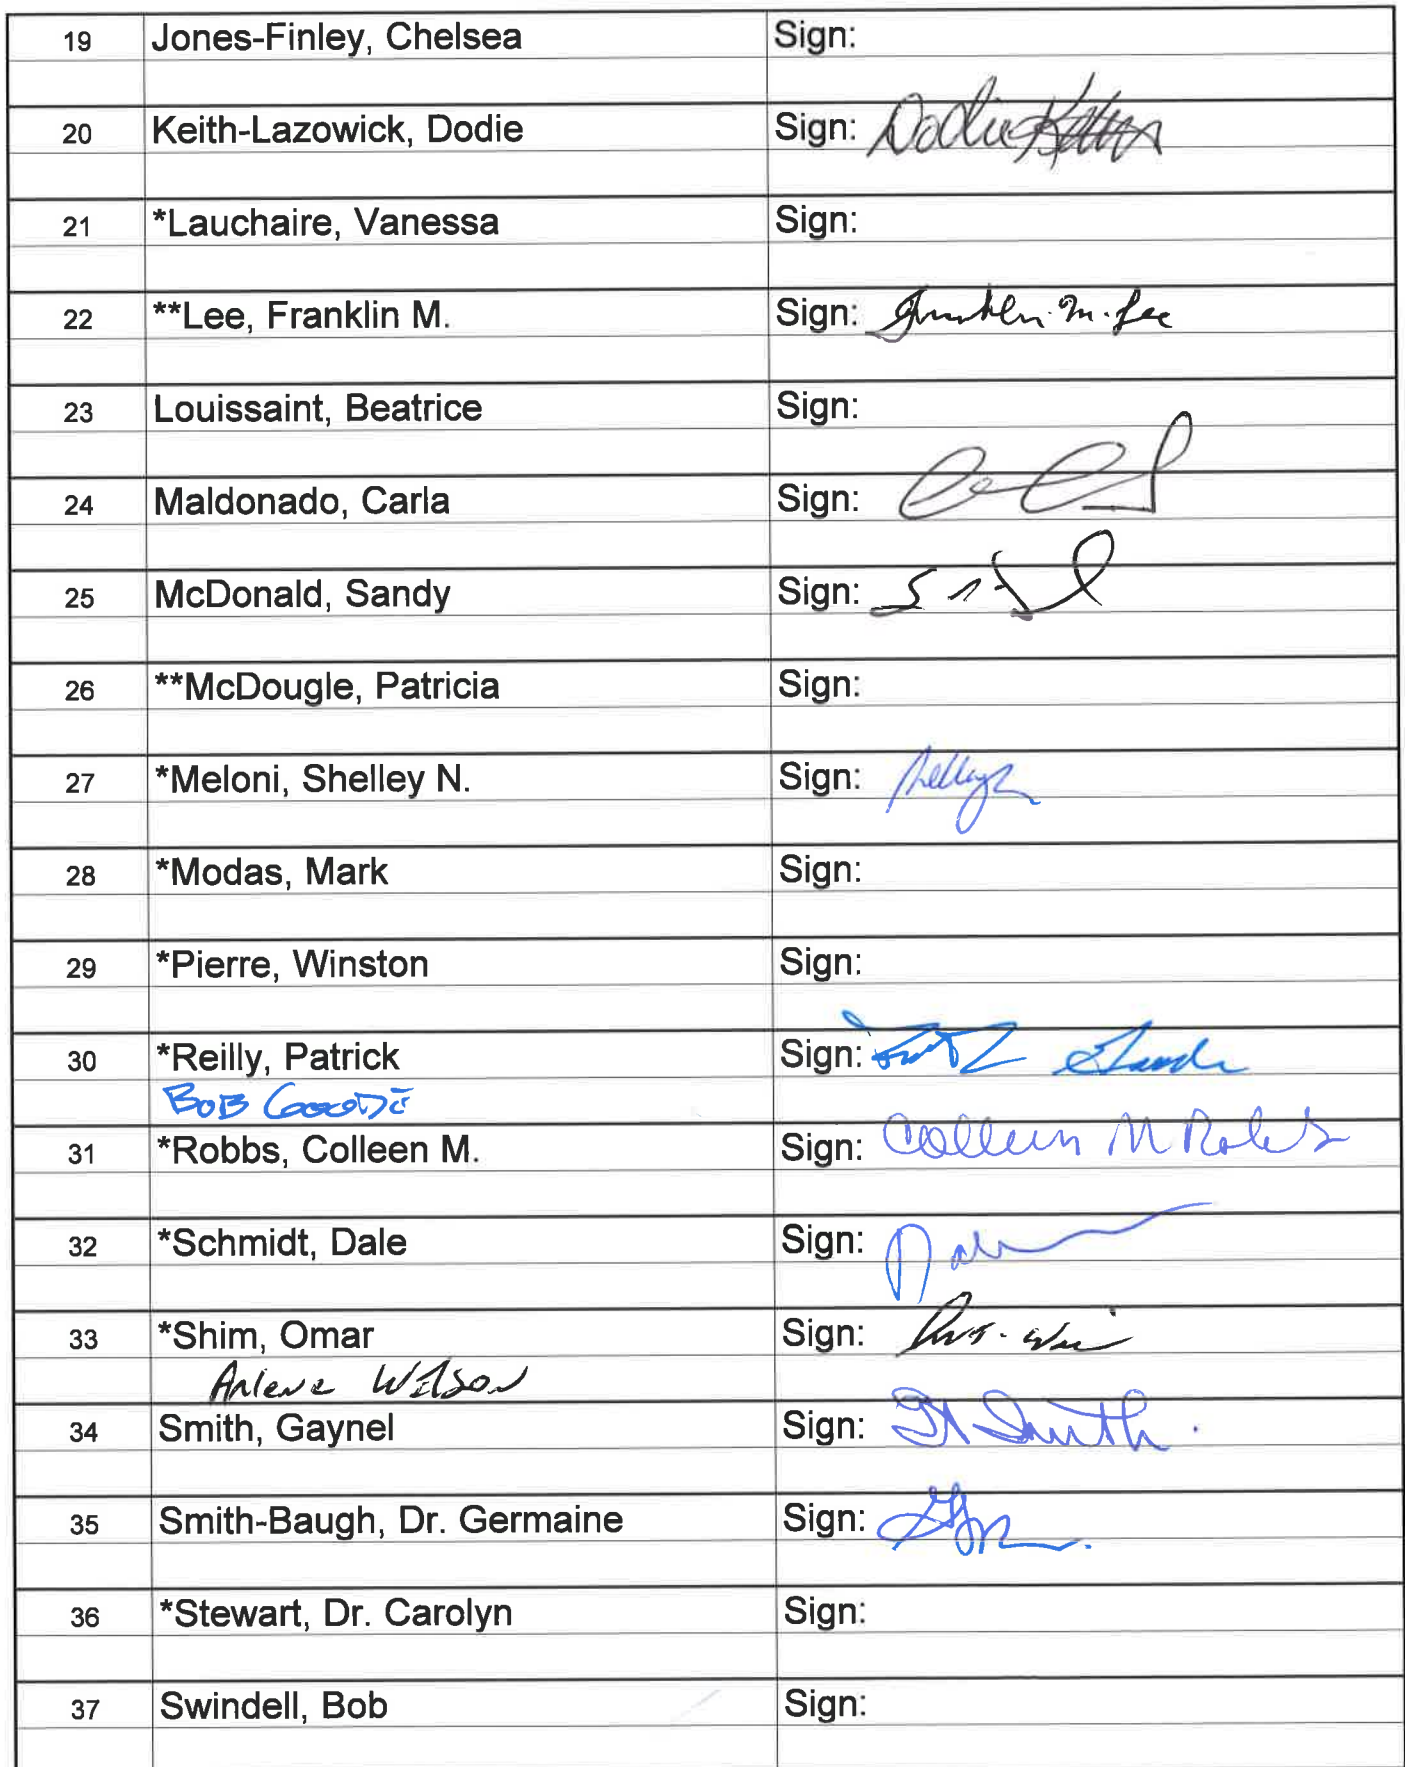 19 Jones-Finley, Chelsea Sign:
20 Keith-Lazowick, Dodie Sign: Dodie Keith
21 *Lauchaire, Vanessa Sign:
22 **Lee, Franklin M. Sign: Franklin M. Lee
23 Louissaint, Beatrice Sign:
24 Maldonado, Carla Sign:
25 McDonald, Sandy Sign:
26 **McDougle, Patricia Sign:
27 *Meloni, Shelley N. Sign: Shelley
28 *Modas, Mark Sign:
29 *Pierre, Winston Sign:
30 *Reilly, Patrick Sign:
BOB GOODE
31 *Robbs, Colleen M. Sign: Colleen M Robbs
32 *Schmidt, Dale Sign: Dale
33 *Shim, Omar Sign:
Arlene Wilson
34 Smith, Gaynel Sign: Smith
35 Smith-Baugh, Dr. Germaine Sign:
36 *Stewart, Dr. Carolyn Sign:
37 Swindell, Bob Sign: